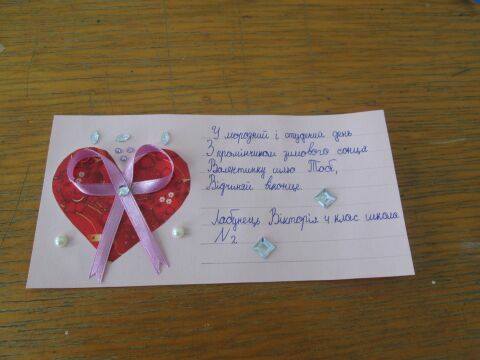 У морозний і студений день
З промінчиком зимового сонця
Валентинку шлю Тобі,
Відчиняй віконце.
Лабунець Вікторія 4 клас школа
N 2